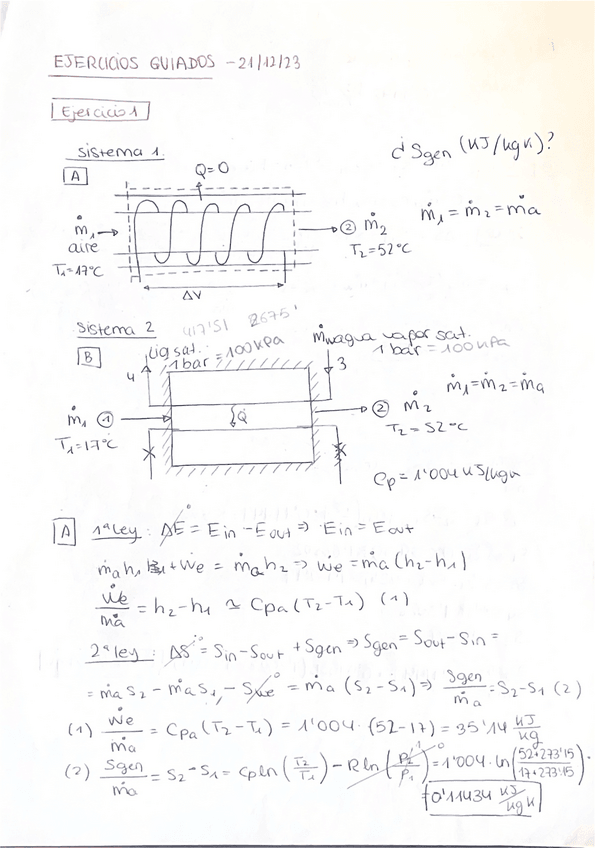 EJERCICIOS GUIADOS - 21/12/23
Ejercicio 1
Sistema 1.
¿ Sgen (KJ/kgK)?
A
Q=0
ṁ₁ → aire
T₁=17°C
② ṁ₂
T₂=52°C
ṁ₁ = ṁ₂ = ṁa
ΔV
Sistema 2
417'51 2675'
B
Liq sat.
1 bar = 100 kPa
4
ṁw agua vapor sat.
1 bar = 100 kPa
3
ṁ₁ = ṁ₂ = ṁa
ṁ₁ ①
T₁=17°C
Q̇
② ṁ₂
T₂ = 52°C
Cp = 1'004 KJ/kgK
A 1ª Ley : ΔE⁰ = Ein - Eout ⇒ Ein = Eout
ṁa h₁ + Ẇe = ṁa h₂ ⇒ Ẇe = ṁa (h₂-h₁)
Ẇe/ṁa = h₂-h₁ ≃ Cpa (T₂-T₁) (1)
2ª ley : ΔS⁰ = Sin - Sout + Sgen ⇒ Sgen = Sout - Sin =
= ṁa S₂ - ṁa S₁ - Swe⁰ = ṁa (S₂-S₁) ⇒ Sgen/ṁa = S₂-S₁ (2)
(1) Ẇe/ṁa = Cpa (T₂-T₁) = 1'004 · (52-17) = 35'14 KJ/kg
(2) Sgen/ṁa = S₂ - S₁ = Cp ln (T₂/T₁) - R ln (P₂/P₁)⁰ = 1'004 · ln (52+273'15/17+273'15) ·
= 0'11434 KJ/kgK